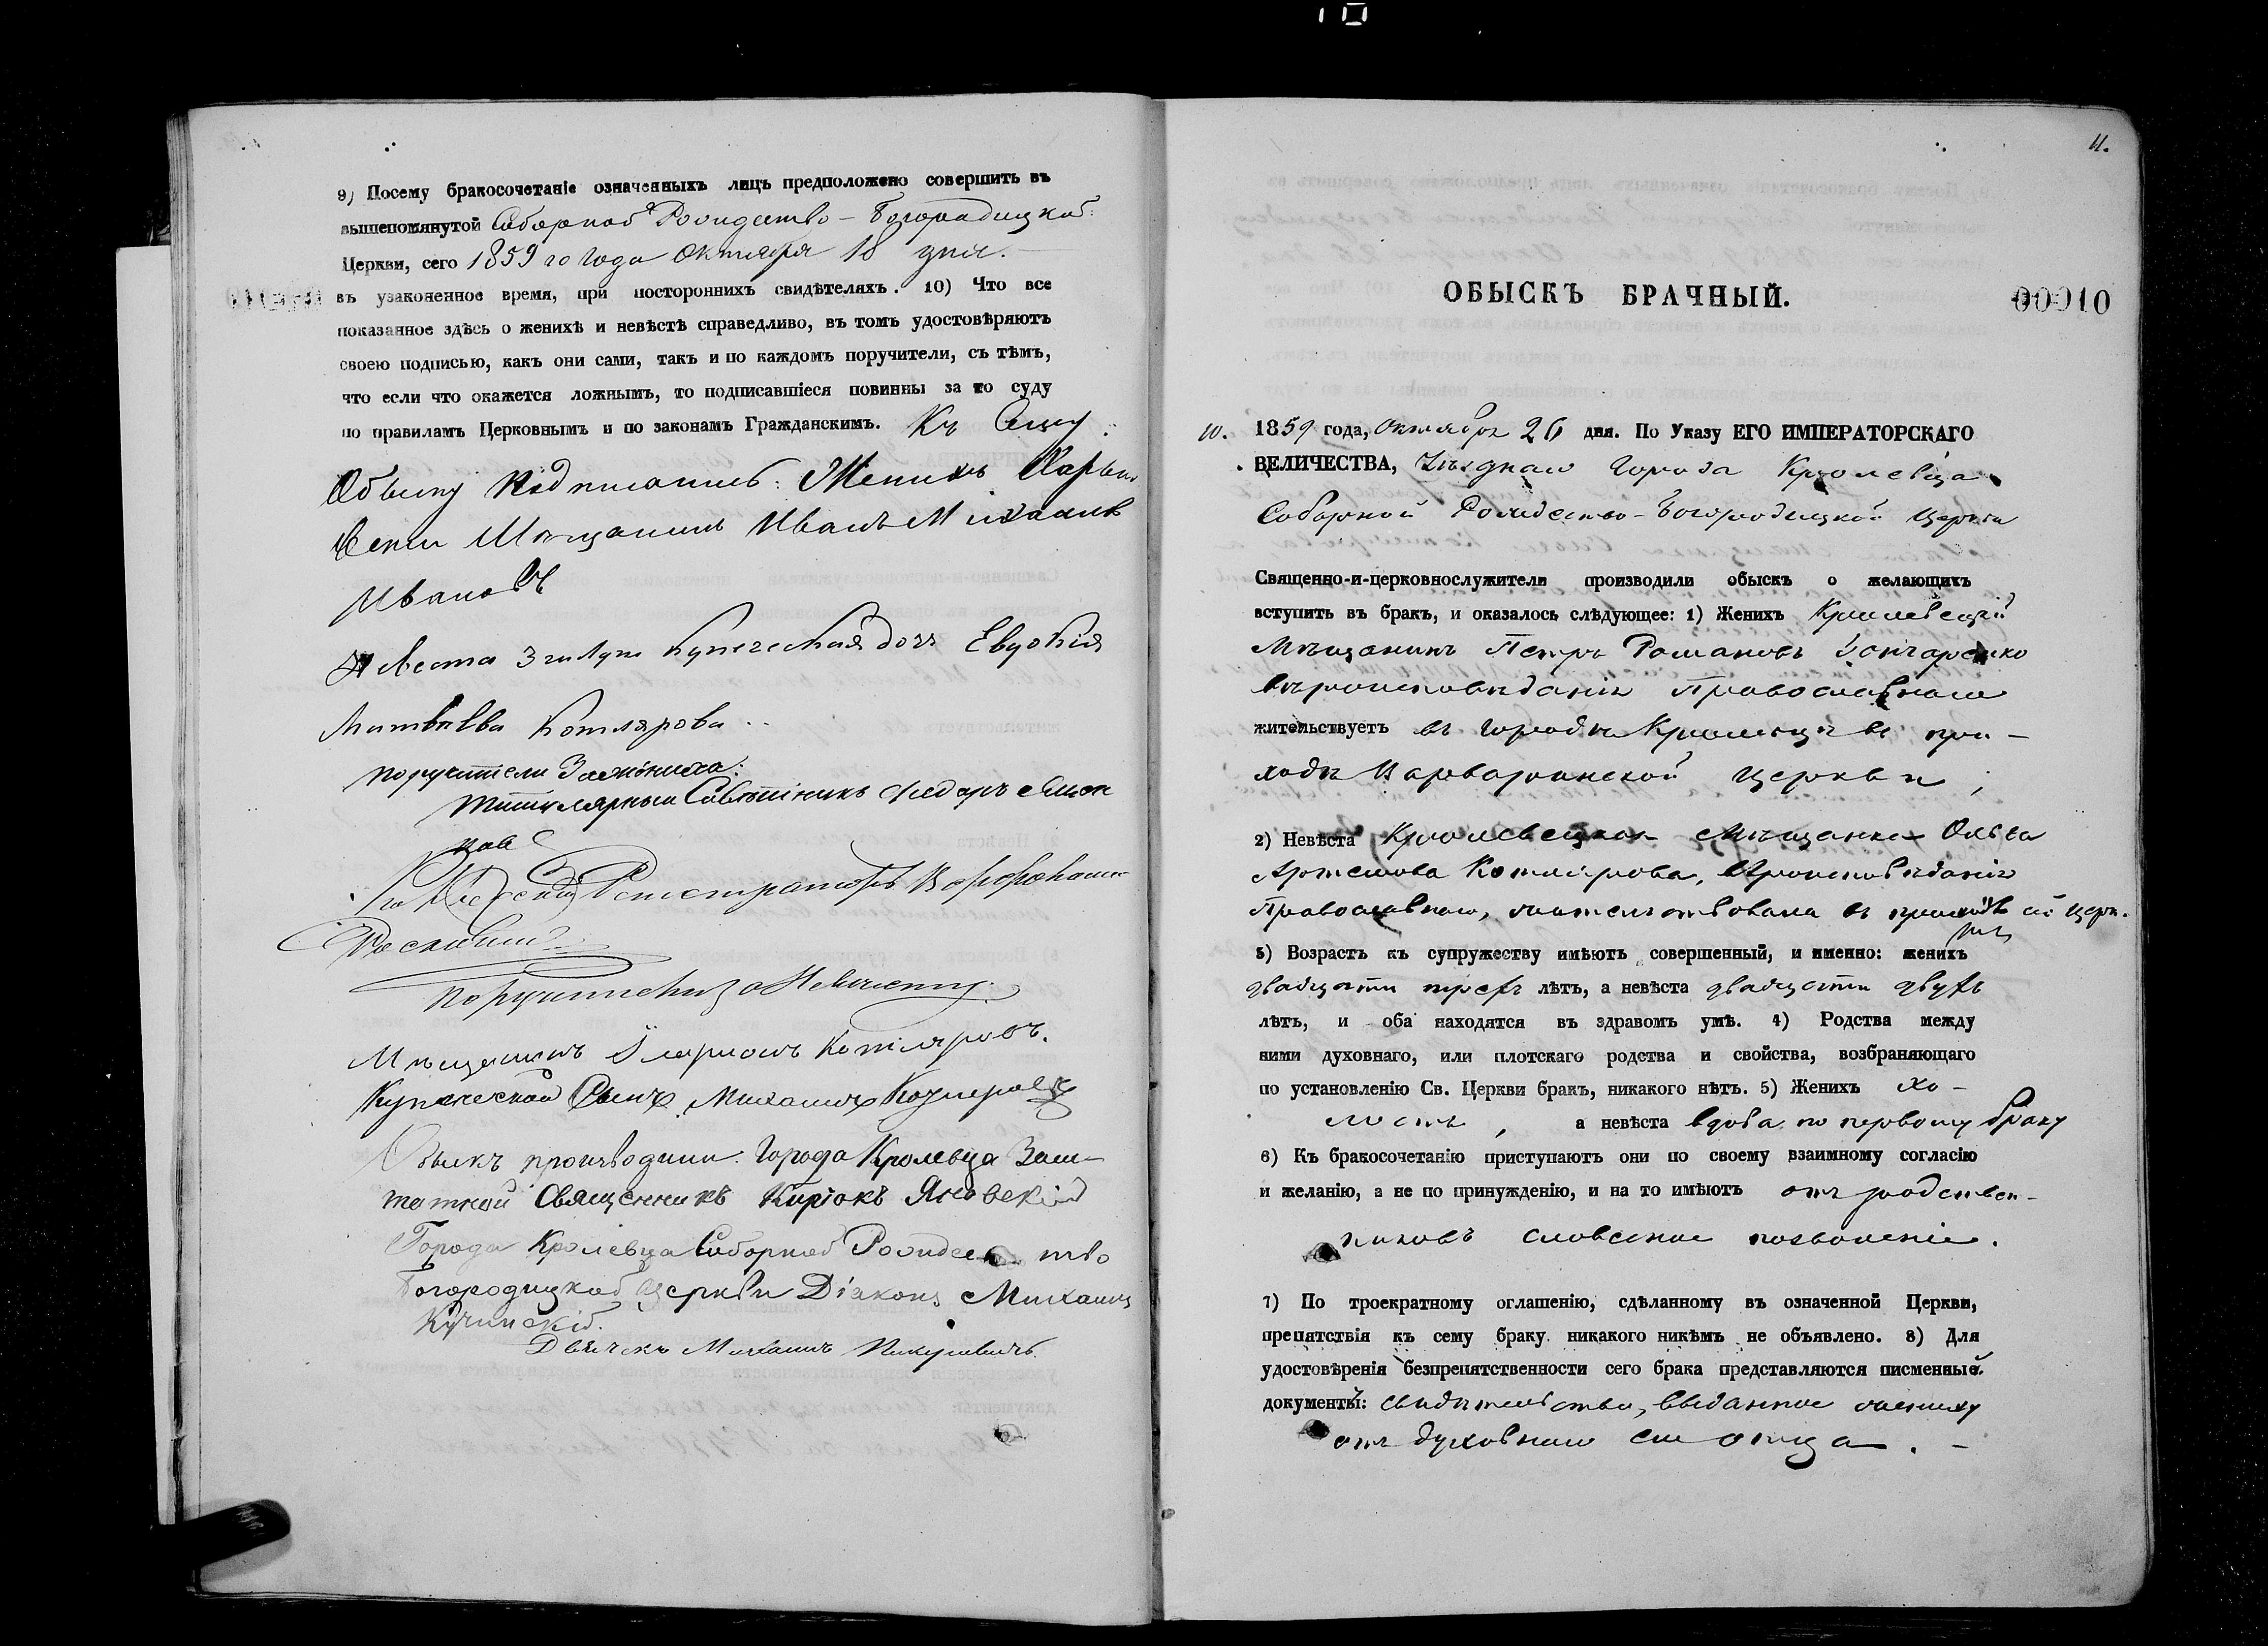 9) Посему бракосочетаніе означенныхъ лицъ предположено совершить въ
вышепомянутой Соборной Рождество-Богородицкой
Церкви, сего 1859 го года Октября 18 дня.
въ узаконенное время, при постороннихъ свидѣтеляхъ. 10) Что все
показанное здѣсь о женихѣ и невѣстѣ справедливо, въ томъ удостовѣряютъ
своею подписью, какъ они сами, такъ и по каждомъ поручители, съ тѣмъ,
что если что окажется ложнымъ, то подписавшіеся повинны за то суду
по правиламъ Церковнымъ и по законамъ Гражданскимъ. Къ Сему
Обыску подписались: Женихъ
Мѣщанинъ Иванъ Михаиловъ
Ивановъ
Невеста Купеческая дочь Евдокія
Матвѣева Котлярова
поручители За жениха:
Титулярный Совѣтникъ Федоръ
Регистраторъ
поручители за Невѣсту:
Мѣщанинъ Иларионъ Котляровъ.
Купеческой Сынъ Михаилъ
Обыскъ производили: Города Кролевца Заш-
татной Священникъ Яновскій
Города Кролевца Соборной Рождест тво
Богородицкой Церкви Діаконъ Михаилъ
Кучинскій.
Дьячекъ Михаилъ Пикулевичъ.
11.
ОБЫСКЪ БРАЧНЫЙ.
00010
10. 1859 года, Октября 26 дня. По Указу ЕГО ИМПЕРАТОРСКАГО
ВЕЛИЧЕСТВА, Уѣзднаго Города Кролевца
Соборной Рождество-Богородицкой Церкви
Священно-и-церковнослужители производили обыскъ о желающихъ
вступить въ бракъ, и оказалось слѣдующее: 1) Женихъ Кролевецкій
Мѣщанинъ Петръ Романовъ Гончаренко
вѣроисповѣданія Православнаго
жительствуетъ въ городѣ Кролевцѣ въ при-
ходѣ Варваринской Церкви;
2) Невѣста Кролевецкая Мѣщанка Ольга
Артемова Котлярова, вѣроисповѣданія
Православнаго, жительствовала въ приходѣ сей церк.
3) Возрастъ къ супружеству имѣютъ совершенный, и именно: женихъ
двадцати трехъ лѣтъ, а невѣста двадцати двухъ
лѣтъ, и оба находятся въ здравомъ умѣ. 4) Родства между
ними духовнаго, или плотскаго родства и свойства, возбраняющаго
по установленію Св. Церкви бракъ, никакого нѣтъ. 5) Женихъ хо-
лостъ, а невѣста вдова по первому браку
6) Къ бракосочетанію приступаютъ они по своему взаимному согласію
и желанію, а не по принужденію, и на то имѣютъ отъ родствен-
никовъ словесное позволеніе.
7) По троекратному оглашенію, сдѣланному въ означенной Церкви,
препятствія къ сему браку никакого никѣмъ не объявлено. 8) Для
удостовѣренія безпрепятственности сего брака представляются писменные
документы: свидѣтельство, выданное жениху
отъ духовнаго его отца.